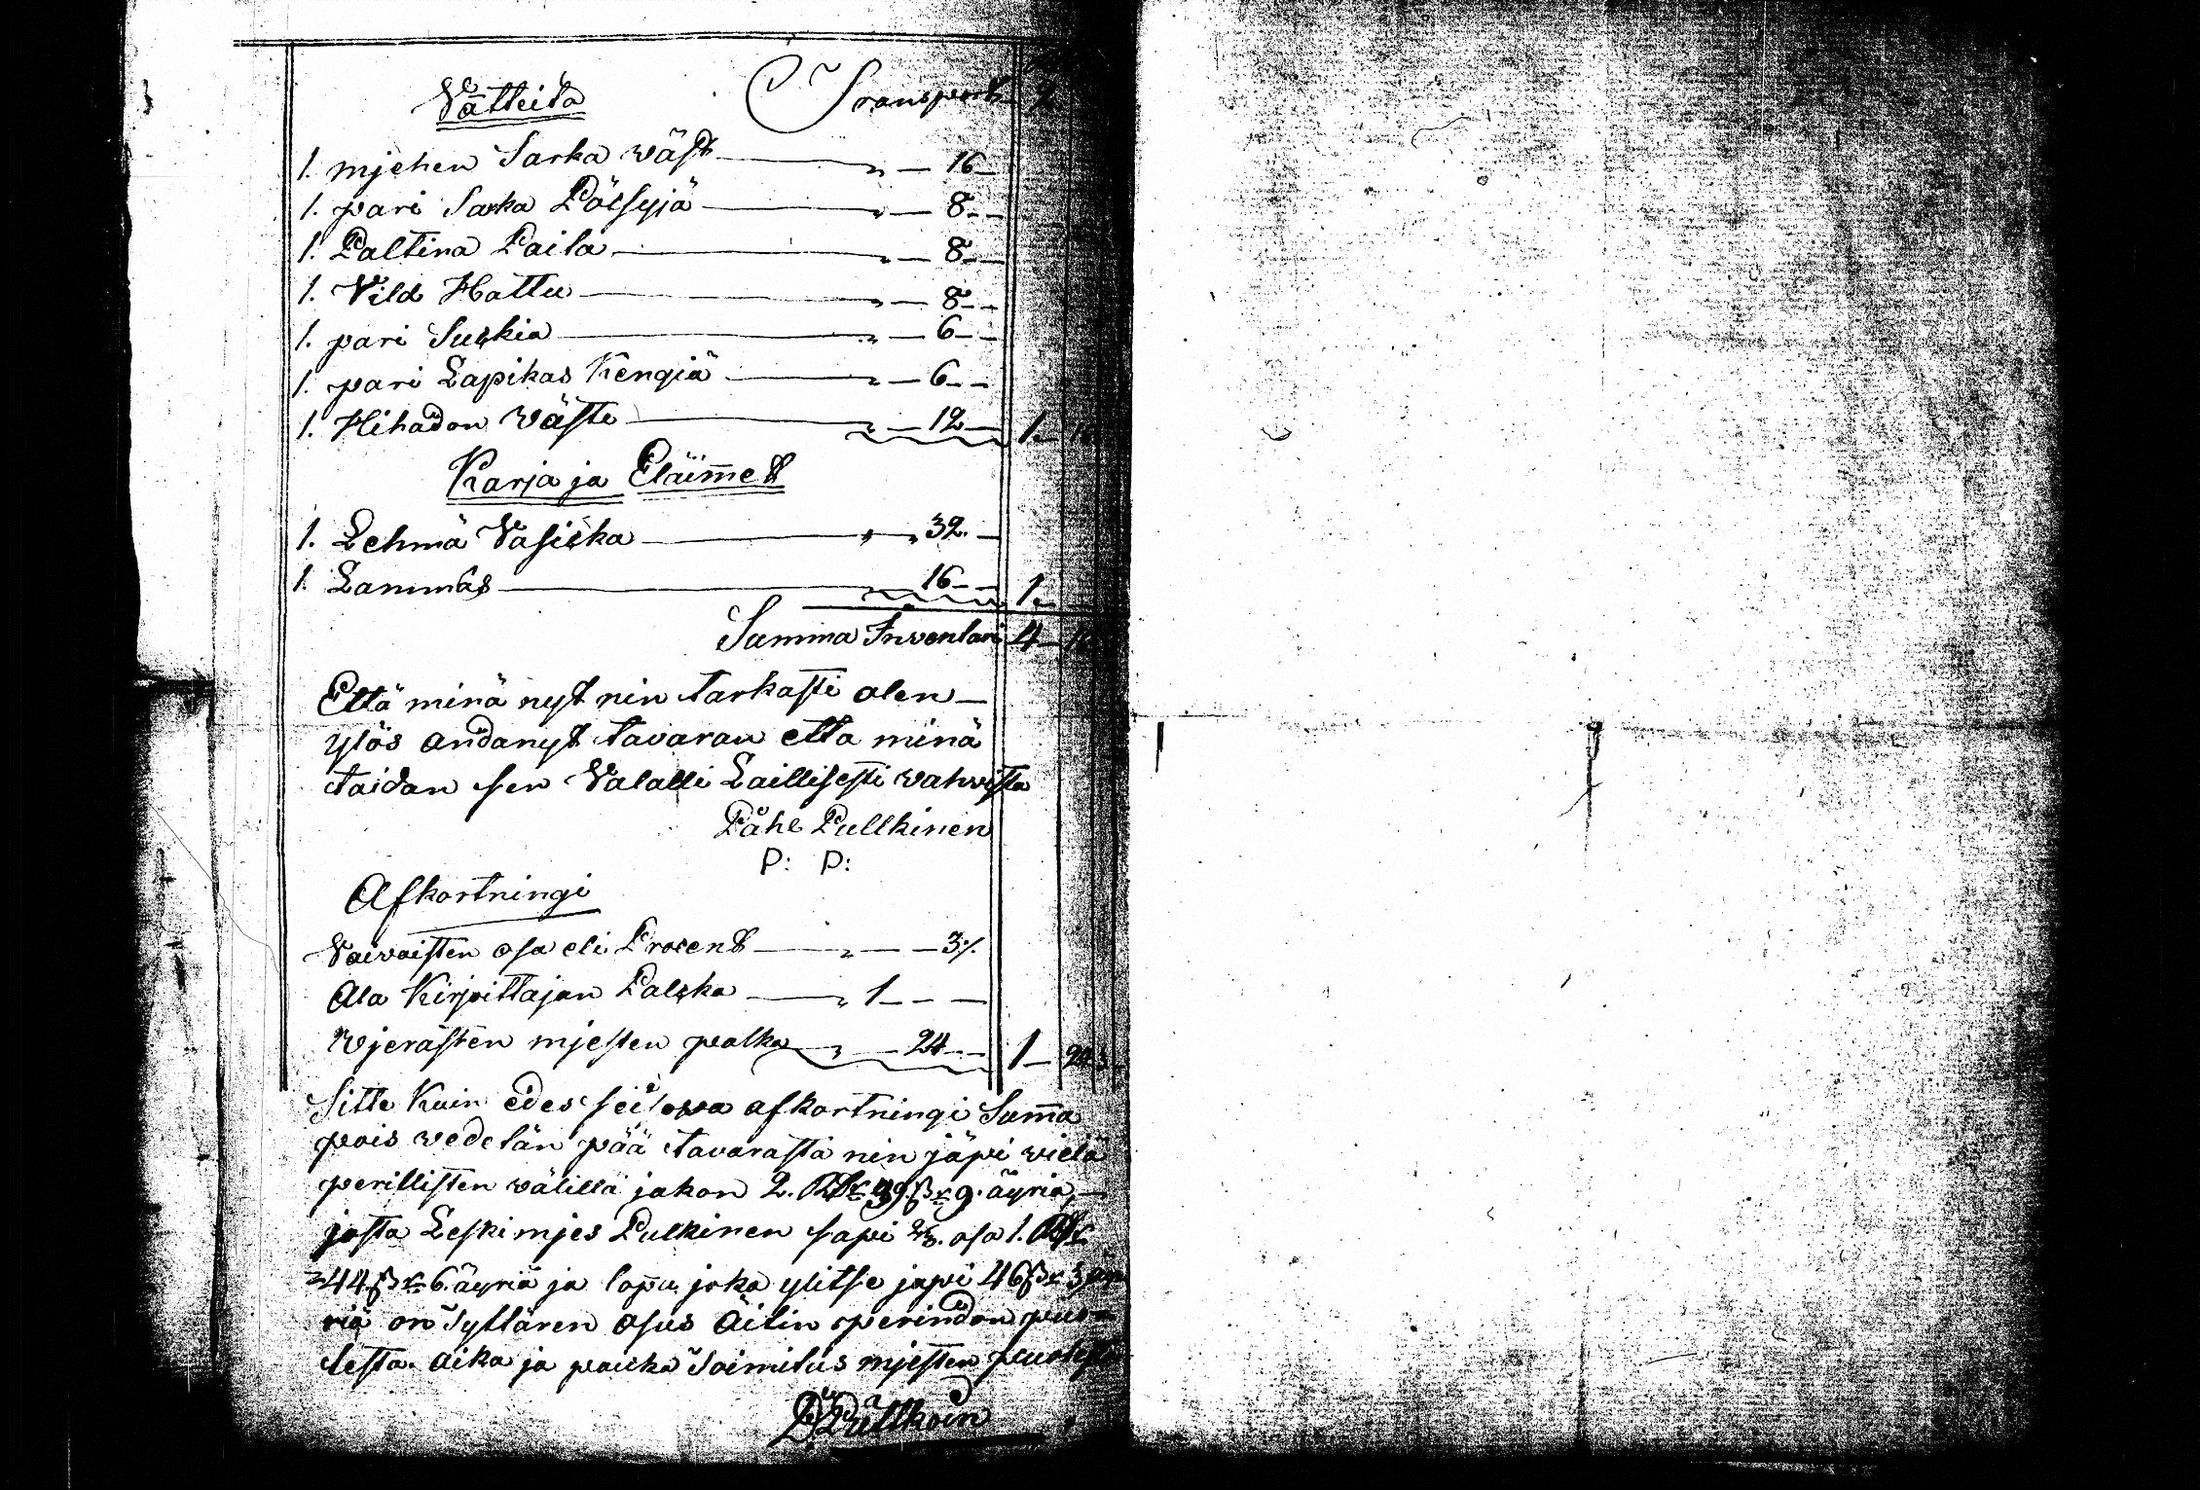 Vätteitä Transport 2
1. mjehen Sarka wäst „ — 16 —
1. pari Sarka Pöksyjä „ — 8 —
1. Paltina Paita „ — 8 —
1. Vild Hattu „ — 8 —
1. pari Sukkia „ — 6 —
1. pari Lapikas Kengiä „ — 6 —
1. Hihadon wästi „ — 12 — 1. —
Karja ja Eläimet
1. Lehmä Vasikka „ — 32. —
1. Lammas „ 16 — 1. —
Summa Inventari 4 —
Että minä nyt nin tarkasti olen
ylös andanyt tavaran etta minä
taidan sen Valalli Laillisesti vahvista
Påhl Pullkinen
P: P:
Afkortningi
Vaivaisten osa eli Procent „ — 3 ⁒
Ala Kirjoittajan Palcka „ 1 — —
Wjerästen mjesten palka „ — 24 — 1 — 24
Sitte Kuin edes seisova afkortningi Summa
pois vedetän pää tavarasta nin jäpi vielä
perillisten välillä jakon 2. Rd 39 β 9. äyriä,
josta Leskimjes Pulkinen sapi ⅔. osa 1. Rd
44 β 6. äyriä ja loppu joka ylitse japi 46 β 3 äy
riä on Tyttären osus Äitin perindön puo
lesta. aika ja paicka Toimitus mjesten puolesta